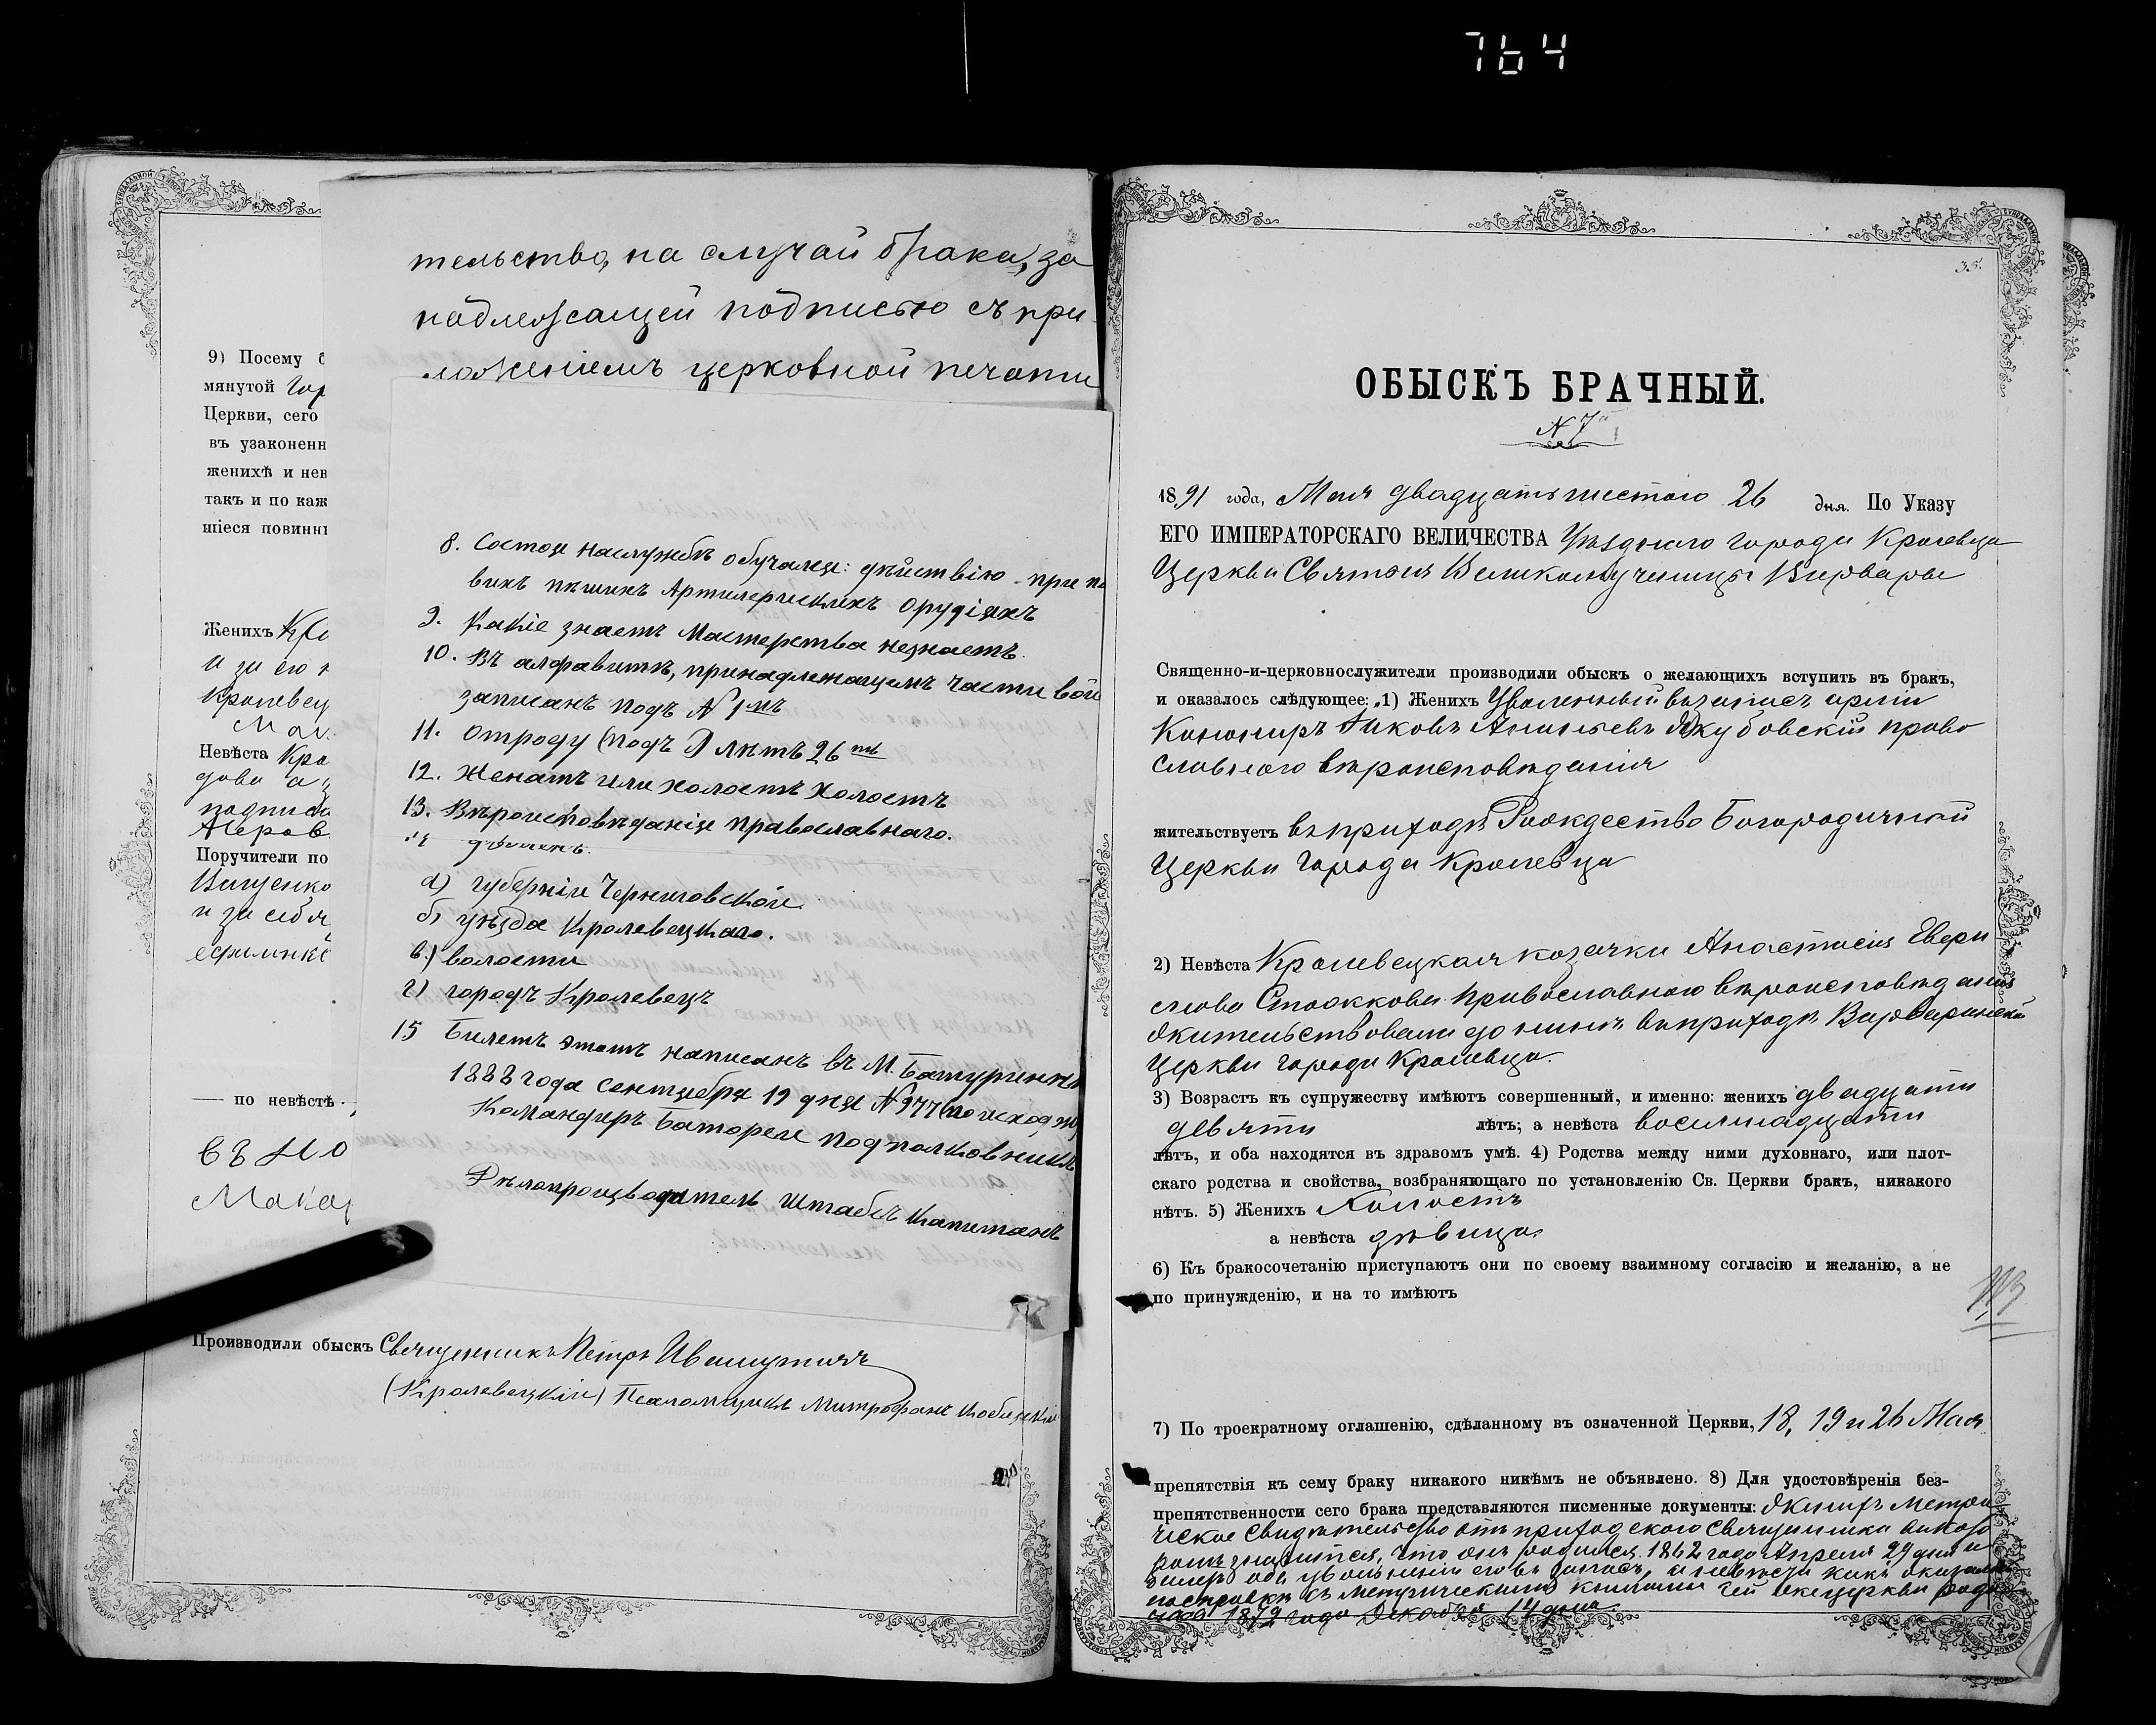 764
тельство, на случай брака, за
надлежащей подписью съ при-
ложеніемъ церковной печати
9) Посему
мянутой Гор
Церкви, сего
въ узаконенн
женихѣ и нев
такъ и по каж
шіеся повинн
Женихъ
и за его
Кролевец
Невѣста Кро
подписа
Поручители по
и за себя
по невѣстѣ
въ
Мака
8. Состоя наслужбѣ обучался: дѣйствію при
викъ пѣшихъ Артилерискихъ Орудіяхъ
9. Какіе знаетъ Мастерства незнаетъ.
10. Въ алфавитѣ, принадлежащемъ части вой
записанъ подъ № 1мъ
11. Отроду (подъ Лѣтъ 26ти
12. Женатъ или холостъ Холостъ
13. Вѣроисповѣданія православнаго.
14
а) губерніи Черниговской.
б) уѣзда Кролевецкаго.
в) волости
г) городъ Кролевецъ
15 Билетъ этотъ написанъ въ М. Батуринѣ
1888 года сентября 19 дня № 977 (по исход
Командиръ Батареи подполковникъ
Дѣлопроизводитель Штабсъ Капитанъ
Производили обыскъ Священникъ Петръ
(Кролевецкій) Псаломщикъ Митрофанъ
35.
ОБЫСКЪ БРАЧНЫЙ.
№ 7й
1891 года, Мая двадцать шестого 26 дня. По Указу
ЕГО ИМПЕРАТОРСКАГО ВЕЛИЧЕСТВА Уѣзднаго города Кролевца
Церкви Святыя Великомученицы Варвары
Священно-и-церковнослужители производили обыскъ о желающихъ вступить въ бракъ,
и оказалось слѣдующее: 1) Женихъ Уволенный въ запасъ арміи
Канониръ Іаковъ Ананьевъ Якубовскій право
славнаго вѣроисповѣданія
жительствуетъ въ приходѣ Рождество Богородичной
Церкви города Кролевца
2) Невѣста Кролевецкая козачка Анастасія
православнаго вѣроисповѣданія
жительствовала до нынѣ въ приходѣ Варваринской
Церкви города Кролевца.
3) Возрастъ къ супружеству имѣютъ совершенный, и именно: женихъ двадцати
девяти лѣтъ; а невѣста восемнадцати
лѣтъ, и оба находятся въ здравомъ умѣ. 4) Родства между ними духовнаго, или плот-
скаго родства и свойства, возбраняющаго по установленію Св. Церкви бракъ, никакого
нѣтъ. 5) Женихъ Холостъ
а невѣста дѣвица.
6) Къ бракосочетанію приступаютъ они по своему взаимному согласію и желанію, а не
по принужденію, и на то имѣютъ
7) По троекратному оглашенію, сдѣланному въ означенной Церкви, 18, 19 и 26 Мая
препятствія къ сему браку никакого никѣмъ не объявлено. 8) Для удостовѣренія без-
препятственности сего брака представляются писменные документы: Женихъ метри
ческое свидѣтельство отъ приходского священника въ кото
ромъ значится, что онъ родился 1862 года Апреля 29 дня и
билетъ объ увольненіи его въ запасъ, а невѣста какъ оказалось
по справкѣ съ метрическими книгами сей же церкви роди
лась 1872 года Декабря 14 дня.